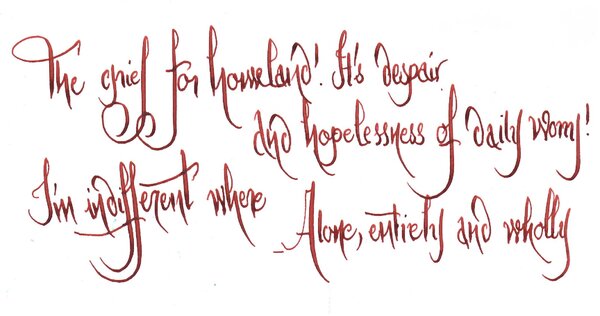 The grief for homeland! It's despair
and hopelessness of daily worry!
I'm indifferent where
_Alone, entirely and wholly